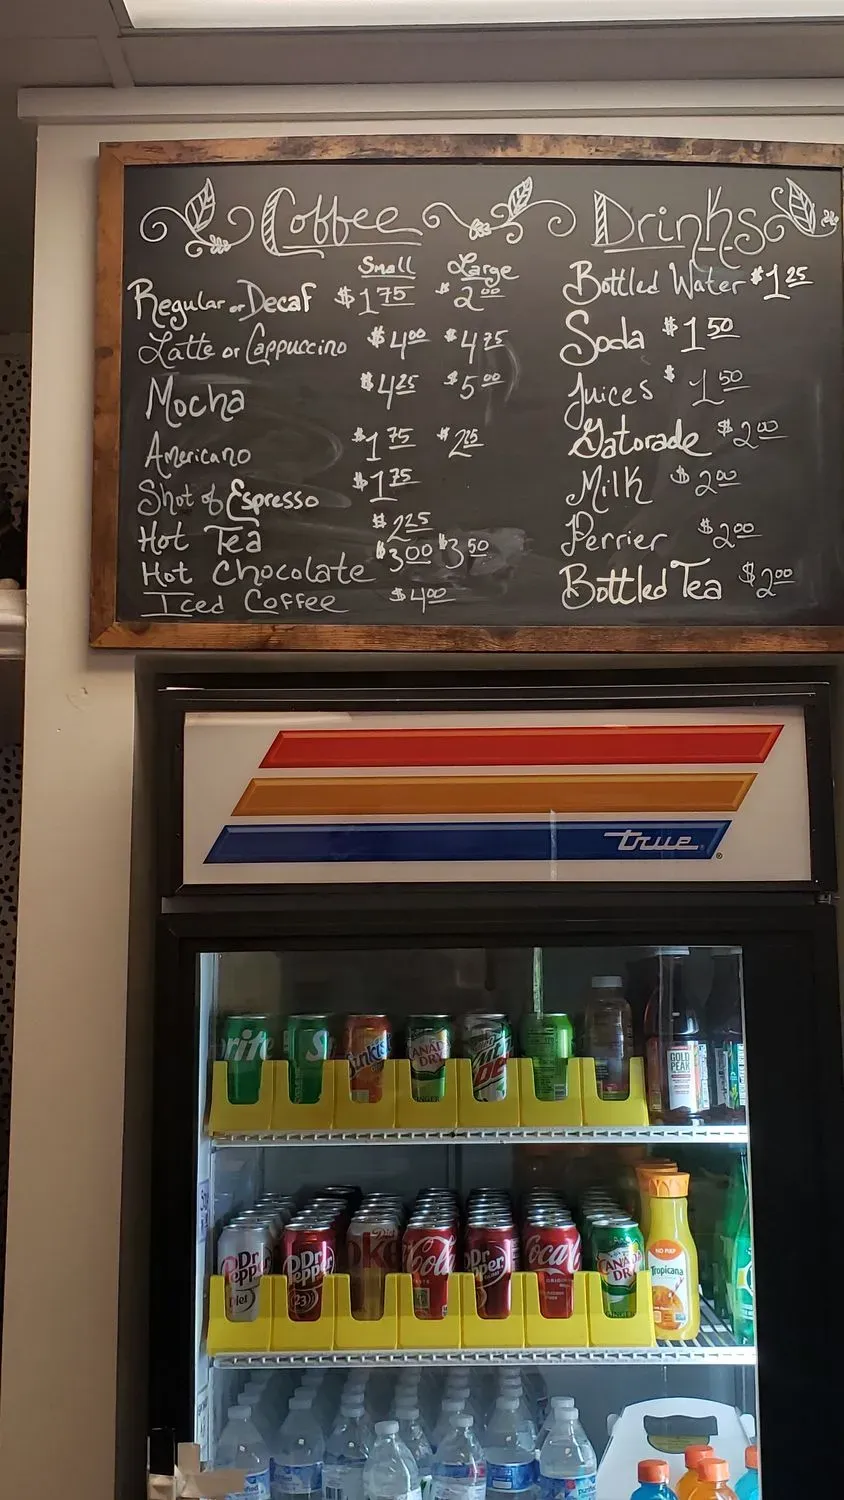 Coffee
Small Large
Regular or Decaf $1.75 $2.00
Latte or Cappuccino $4.00 $4.75
Mocha $4.25 $5.00
Americano $1.75 $2.25
Shot of Espresso $1.75
Hot Tea $2.25
Hot Chocolate $3.00 $3.50
Iced Coffee $4.00
Drinks
Bottled Water $1.25
Soda $1.50
Juices $1.50
Gatorade $2.00
Milk $2.00
Perrier $2.00
Bottled Tea $2.00
true®
rite
S
Sunkist
CANADA
DRY
GINGER
Mtn
DEW
GOLD
PEAK
Dr
Pepper
Diet
Dr
Pepper
23
Coke
Coca
Dr
Pepper
Coca
CANADA
DRY
GINGER
NO PULP
Tropicana